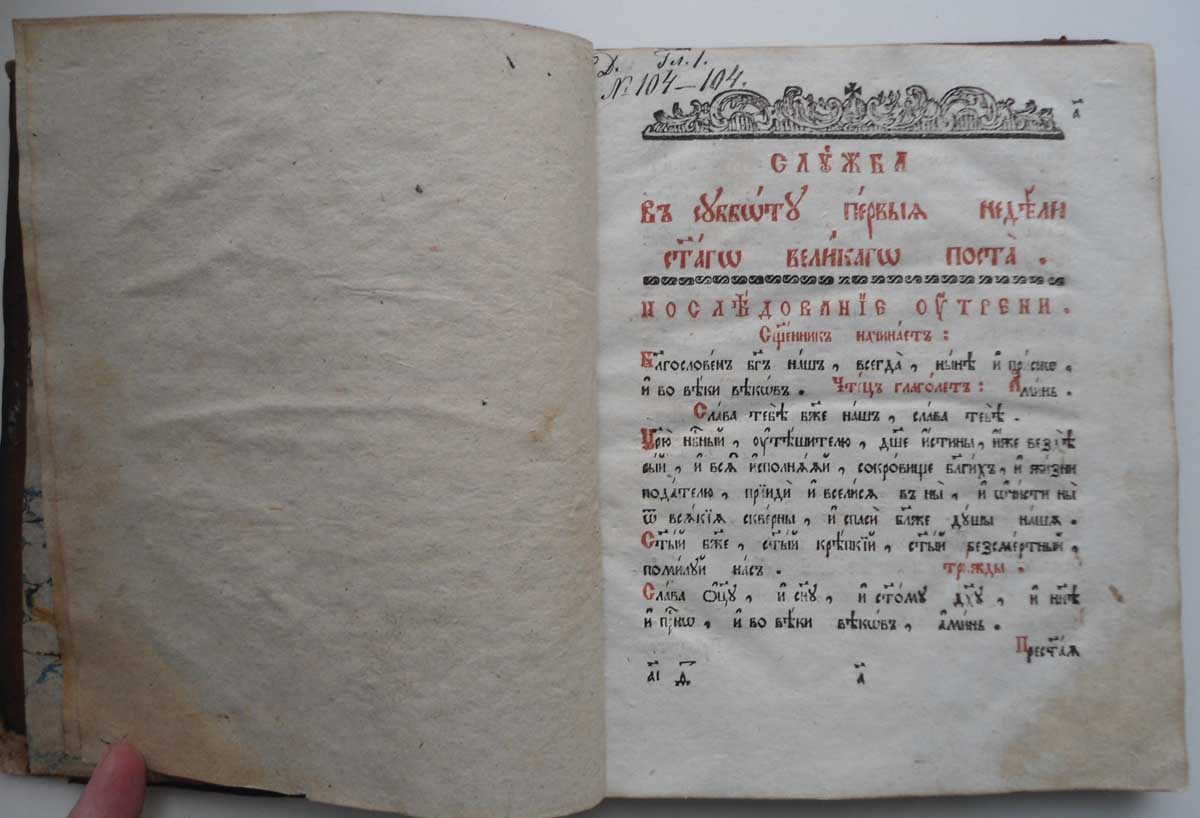 Д. Гл. 1.
№ 104 — 104.
а҃
СЛꙊ́ЖБА
Въ сꙋббѡ́тꙋ пе́рвыѧ недѣ́ли
ст҃а́гѡ вели́кагѡ поста̀ .
ПОСЛѢ́ДОВАНІЕ ОУ҆́ТРЕНИ .
Сщ҃е́нникъ начина́етъ :
Бл҃гослове́нъ бг҃ъ на́шъ , всегда̀ , ны́нѣ и҆ при́снѡ ,
и҆ во вѣ́ки вѣкѡ́въ . Чте́цъ глаго́летъ : А҆ми́нь .
Сла́ва тебѣ̀ бж҃е на́шъ , сла́ва тебѣ̀ .
Цр҃ю̀ нбⷭ҇ный , ᲂу҆тѣ́шителю , дш҃е и҆́стины , и҆́же вездѣ̀
сы́й , и҆ всѧ̑ и҆сполнѧ́ѧй , сокро́вище бл҃ги́хъ , и҆ жи́зни
пода́телю , прїидѝ и҆ всели́сѧ въ ны̀ , и҆ ѡ҆чи́сти ны̀
ѿ всѧ́кїѧ скве́рны , и҆ спасѝ бл҃же дꙋ́шы на́шѧ .
Ст҃ы́й бж҃е , ст҃ы́й крѣ́пкїй , ст҃ы́й безсме́ртный ,
поми́лꙋй на́съ . три́жды .
Сла́ва ѻ҆ц҃ꙋ̀ , и҆ сн҃ꙋ , и҆ ст҃о́мꙋ дх҃ꙋ , и҆ нн҃ѣ
и҆ прⷭ҇нѡ , и҆ во вѣ́ки вѣкѡ́въ , а҆ми́нь .
Прест҃а́ѧ
а҃і а҃